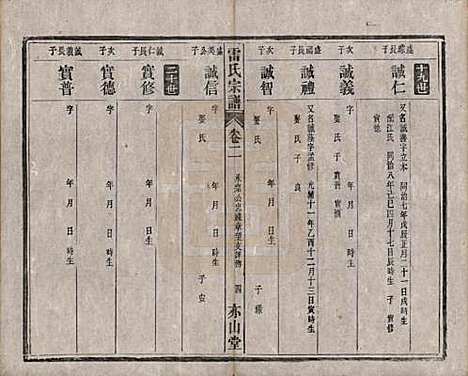 十九世
盛繁長子
誠仁
又名誠濱字立本 同治七年戊辰正月二十一日戌時生
娶江氏 同治八年己巳四月十七日辰時生 子 實修
實德
次子
誠義
字 年 月 日 時生
娶 氏 子 實普 實穎
盛福長子
誠禮
又名誠漢字孟修 光緒十一年乙酉十二月十三日寅時生
娶 氏 子 良
次子
誠智
字 年 月 日 時生
娶 氏 子 祿
雷氏宗譜
卷二
四 亦山堂
盛英公子
誠信
字 年 月 日 時生
娶 氏 子 安
二十世
誠仁長子
實修
字 年 月 日 時生
次子
實德
字 年 月 日 時生
誠義長子
實普
字 年 月 日 時生